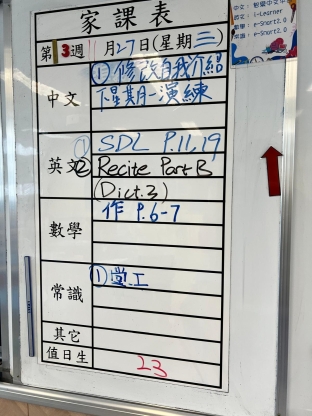 家課表
第13週 11月27日(星期三)
中文
① 修改自我介紹
下星期一演練
英文
① SDL P.11,19
② Recite Part B
(Dict.3)
數學
作 P.6-7
常識
① 堂工
其它
值日生
23
中文:
英文: i-Learner
數學: e-Smart2.0
常識: e-Smart2.0